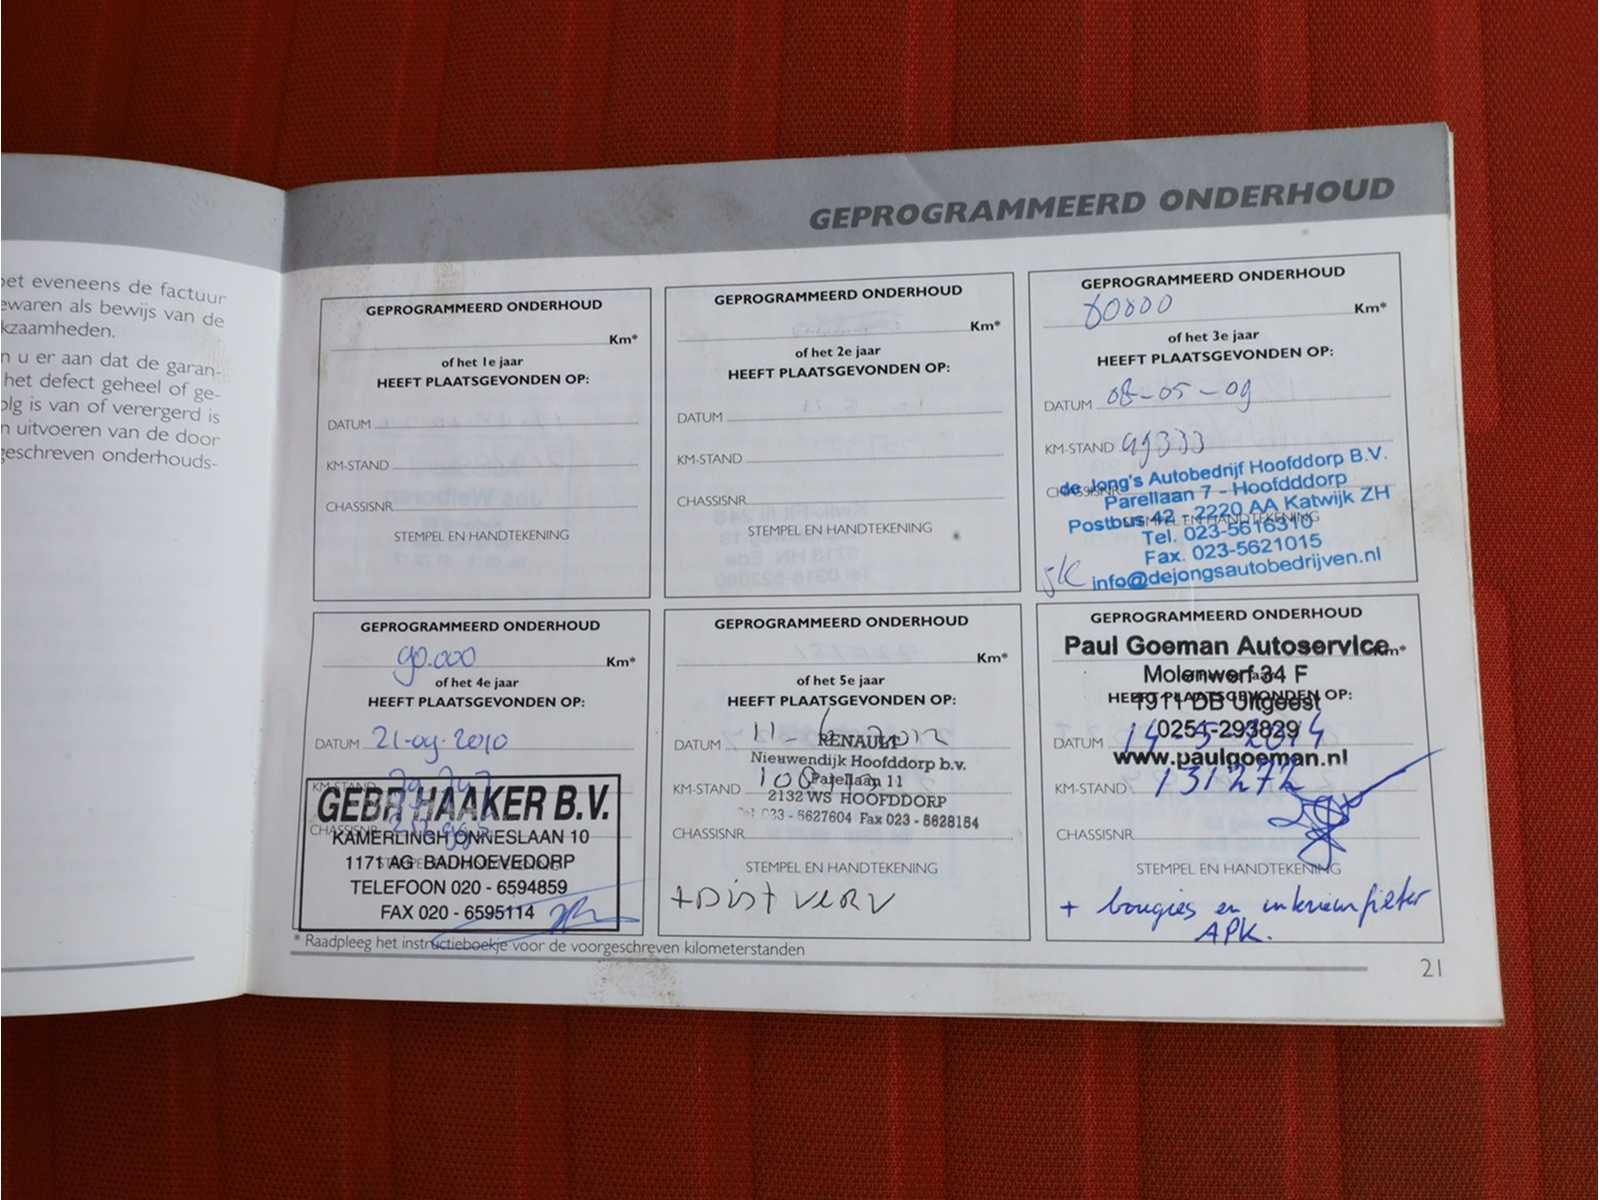 GEPROGRAMMEERD ONDERHOUD
eveneens de factuur
als bewijs van de
n u er aan dat de garan-
het defect geheel of ge-
is van of verergerd is
uitvoeren van de door
onderhouds-
GEPROGRAMMEERD ONDERHOUD
Km*
of het 1e jaar
HEEFT PLAATSGEVONDEN OP:
DATUM
KM-STAND
CHASSISNR.
STEMPEL EN HANDTEKENING
GEPROGRAMMEERD ONDERHOUD
Km*
of het 2e jaar
HEEFT PLAATSGEVONDEN OP:
DATUM
KM-STAND
CHASSISNR.
STEMPEL EN HANDTEKENING
GEPROGRAMMEERD ONDERHOUD
Km*
of het 3e jaar
HEEFT PLAATSGEVONDEN OP:
DATUM 08-05-09
KM-STAND
CHASSISNR.
STEMPEL EN HANDTEKENING
de Jong's Autobedrijf Hoofddorp B.V.
Parellaan 7 - Hoofdddorp
Postbus 42 - 2220 AA Katwijk ZH
Tel. 023-5616310
Fax. 023-5621015
info@dejongsautobedrijven.nl
GEPROGRAMMEERD ONDERHOUD
90.000 Km*
of het 4e jaar
HEEFT PLAATSGEVONDEN OP:
DATUM 21-09-2010
KM-STAND
CHASSISNR.
GEBR HAAKER B.V.
KAMERLINGH ONNESLAAN 10
1171 AG BADHOEVEDORP
TELEFOON 020 - 6594859
FAX 020 - 6595114
GEPROGRAMMEERD ONDERHOUD
Km*
of het 5e jaar
HEEFT PLAATSGEVONDEN OP:
DATUM
RENAULT
Nieuwendijk Hoofddorp b.v.
KM-STAND
Parellaan 11
2132 WS HOOFDDORP
Tel 023 - 5627604 Fax 023 - 5628154
CHASSISNR.
STEMPEL EN HANDTEKENING
+ Dist verv
GEPROGRAMMEERD ONDERHOUD
Paul Goeman Autoservice
Km*
Molenwerf 34 F
HEEFT PLAATSGEVONDEN OP:
1911 DB Uitgeest
0251-293829
DATUM 14-5-2014
www.paulgoeman.nl
KM-STAND 131272
CHASSISNR.
STEMPEL EN HANDTEKENING
+ bougies en interieurfilter
APK.
* Raadpleeg het instructieboekje voor de voorgeschreven kilometerstanden
21